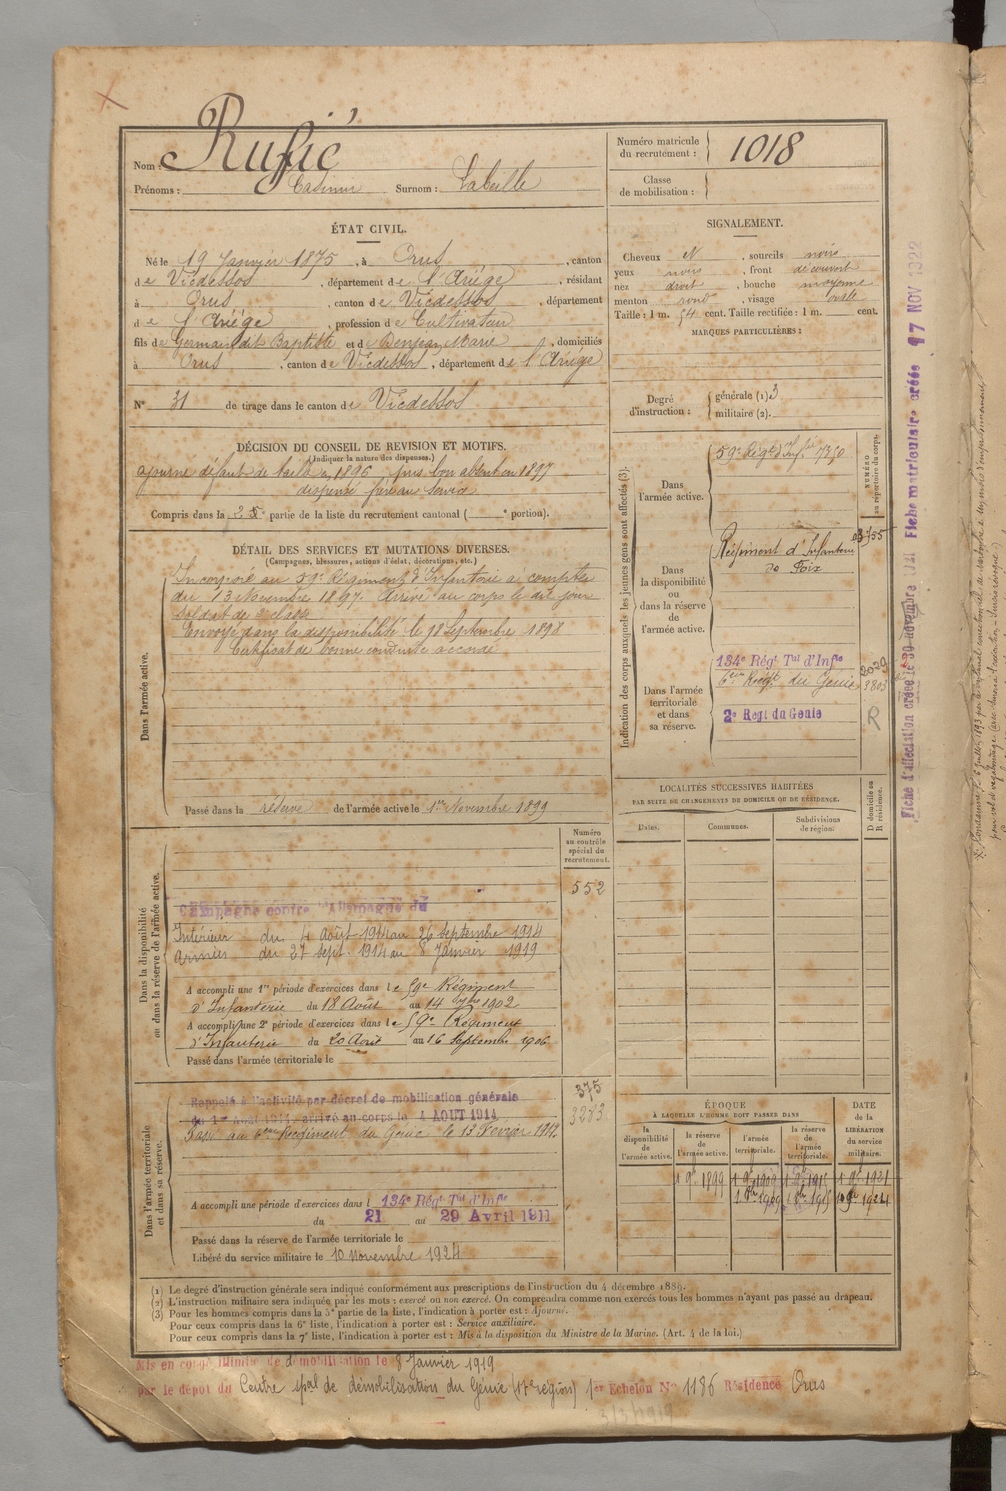 Nom : Rufié
Prénoms : Casimir Surnom : Labeille
Numéro matricule du recrutement : 1018
Classe de mobilisation :
ÉTAT CIVIL.
Né le 19 Janvier 1875, à Orus, canton
de Vicdessos, département de l'Ariége, résidant
à Orus, canton de Vicdessos, département
de l'Ariége, profession de Cultivateur
fils de Germain dit Baptiste et de Denjean Marie, domiciliés
à Orus, canton de Vicdessos, département de l'Ariége
N° 31 de tirage dans le canton de Vicdessos
SIGNALEMENT.
Cheveux et, sourcils noirs
yeux noirs, front découvert
nez droit, bouche moyenne
menton rond, visage ovale
Taille : 1 m. 54 cent. Taille rectifiée : 1 m. cent.
MARQUES PARTICULIÈRES :
Degré d'instruction : générale (1) 3
militaire (2).
DÉCISION DU CONSEIL DE REVISION ET MOTIFS.
(Indiquer la nature des dispenses.)
ajourné défaut de taille en 1896 puis bon absent en 1897
dispensé frère au service
Compris dans la partie de la liste du recrutement cantonal ( e portion).
DÉTAIL DES SERVICES ET MUTATIONS DIVERSES.
(Campagnes, blessures, actions d'éclat, décorations, etc.)
Dans l'armée active.
Incorporé au 59e Régiment d'Infanterie à compter
du 13 Novembre 1897. Arrivé au corps le dit jour
Soldat de 2e classe
Envoyé dans la disponibilité le 18 Septembre 1898
Certificat de bonne conduite accordé
Passé dans la réserve de l'armée active le 1er Novembre 1899
Indication des corps auxquels les jeunes gens sont affectés (3).
NUMÉRO au répertoire du corps.
Dans l'armée active.
59e Régt d'Infrie 7350
Dans la disponibilité ou dans la réserve de l'armée active.
Régiment d'Infanterie
de Foix
Dans l'armée territoriale et dans sa réserve.
134e Régt Tal d'Infie
6eme Régt du Génie
2e Regt du Genie
R
LOCALITÉS SUCCESSIVES HABITÉES
PAR SUITE DE CHANGEMENTS DE DOMICILE OU DE RÉSIDENCE.
Dates. Communes. Subdivisions de région.
D domicile ou R résidence.
Dans la disponibilité ou dans la réserve de l'armée active.
Numéro au contrôle spécial du recrutement.
552
Campagne contre l'Allemagne du
Intérieur du 4 Août 1914 au 26 Septembre 1914
Armées du 27 sept. 1914 au 8 Janvier 1919
A accompli une 1re période d'exercices dans le 59e Régiment
d'Infanterie du 18 Août au 14 7bre 1902
A accompli une 2e période d'exercices dans le 59e Régiment
d'Infanterie du 20 Août au 16 Septembre 1906
Passé dans l'armée territoriale le
Dans l'armée territoriale et dans sa réserve.
375
3283
Rappelé à l'activité par décret de mobilisation générale
du 1er Août 1914, arrivé au corps le 4 AOUT 1914
Passé au 6eme Régiment du Génie le 13 Février 1917.
A accompli une période d'exercices dans l 134e Régt Tal d'Infie
du 21 au 29 Avril 1911
Passé dans la réserve de l'armée territoriale le
Libéré du service militaire le 10 novembre 1924
ÉPOQUE
À LAQUELLE L'HOMME DOIT PASSER DANS
la disponibilité de l'armée active. la réserve de l'armée active. l'armée territoriale. la réserve de l'armée territoriale.
DATE de la LIBÉRATION du service militaire.
(1) Le degré d'instruction générale sera indiqué conformément aux prescriptions de l'instruction du 4 décembre 1889.
(2) L'instruction militaire sera indiquée par les mots : exercé ou non exercé. On comprendra comme non exercés tous les hommes n'ayant pas passé au drapeau.
(3) Pour les hommes compris dans la 5e partie de la liste, l'indication à porter est : Ajourné.
Pour ceux compris dans la 6e liste, l'indication à porter est : Service auxiliaire.
Pour ceux compris dans la 7e liste, l'indication à porter est : Mis à la disposition du Ministre de la Marine. (Art. 4 de la loi.)
Mis en congé illimité de démobilisation le 8 Janvier 1919
par le dépôt du Centre spal de démobilisation du Génie (17e région) 1er Echelon N° 1186 Résidence Orus
Fiche matriculaire créée 17 NOV 1922